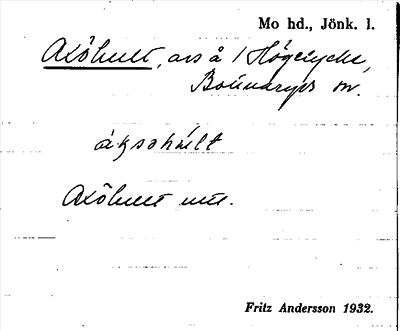 Mo hd., Jönk. l.
Axöhult, avs å 1 Högelycke,
Bottnaryds sn.
áksəhult
Axöhult utt.
Fritz Andersson 1932.